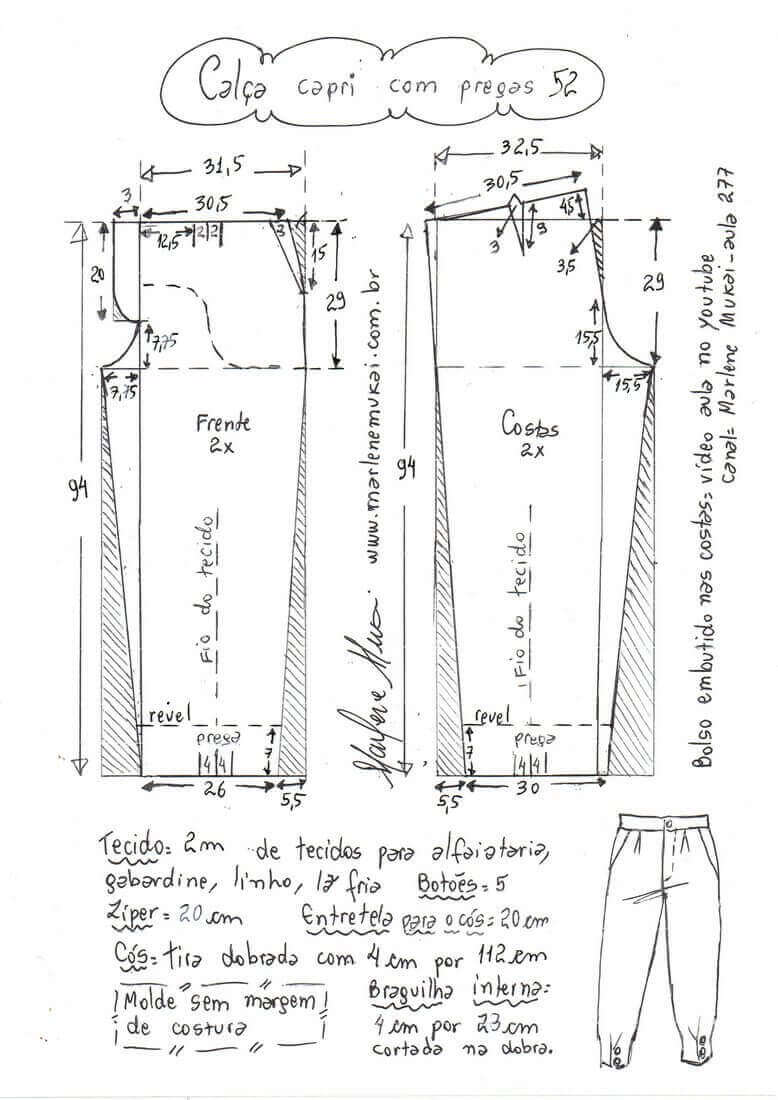 Calça capri com pregas 52
31,5
30,5
3
12,5
2 2
3
15
20
29
7,75
7,75
94
Frente
2x
Fio do tecido
revel
prega
4 4
7
26
5,5
www.marlenemukai.com.br
32,5
30,5
4,5
3
9
3,5
29
15,5
15,5
94
Costas
2x
Fio do tecido
revel
prega
4 4
7
5,5
30
Bolso embutido nas costas= vídeo aula no Youtube
canal= Marlene Mukai-aula 277
Tecido= 2m de tecidos para alfaiataria,
gabardine, linho, lã fria Botões=5
Zíper= 20 cm Entretela para o cós=20 cm
Cós= tira dobrada com 4 cm por 112 cm
Molde sem margem
de costura
Braguilha interna=
4 cm por 23 cm
cortada na dobra.